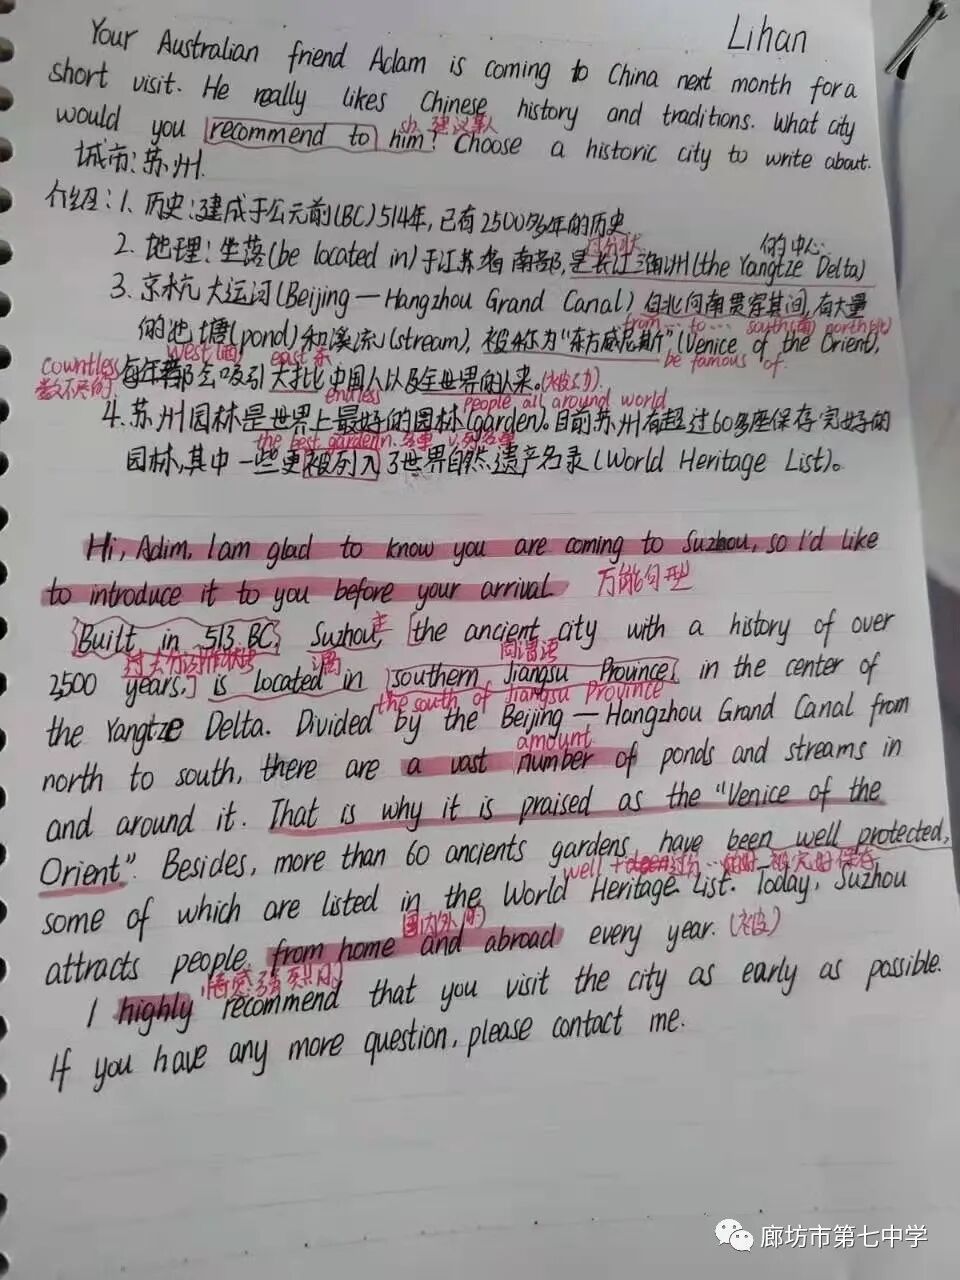 Lihan
Your Australian friend Adam is coming to China next month for a
short visit. He really likes Chinese history and traditions. What city
would you recommend to him? Choose a historic city to write about.
sb. 建议某人
城市:苏州.
介绍:1. 历史:建成于公元前(BC)514年,已有2500多年的历史
的中心
2. 地理:坐落(be located in)于江苏省南部,是长江三角洲(the Yangtze Delta)
3. 京杭大运河(Beijing—Hangzhou Grand Canal)自北向南贯穿其间,有大量
的池塘(pond)和溪流(stream),被称为"东方威尼斯"(Venice of the Orient),
from... to... south(南) north(北)
countless west(西) east 东 be famous of
数不尽的 每年都会吸引大批中国人以及全世界的人来。(被动)
endless people all around world
4. 苏州园林是世界上最好的园林(garden)。目前苏州有超过60多座保存完好的
the best garden
园林,其中一些更被列入了世界自然遗产名录(World Heritage List)。
Hi, Adim, I am glad to know you are coming to Suzhou, so I'd like
to introduce it to you before your arrival 万能句型
Built in 513 BC, Suzhou, the ancient city with a history of over
主 同谓语
2,500 years, is located in southern Jiangsu Province, in the center of
the south of Jiangsu Province
the Yangtze Delta. Divided by the Beijing—Hangzhou Grand Canal from
amount
north to south, there are a vast number of ponds and streams in
and around it. That is why it is praised as the "Venice of the
Orient". Besides, more than 60 ancients gardens have been well protected,
well + 被完好保存
some of which are listed in the World Heritage List. Today, Suzhou
国内外的
attracts people from home and abroad every year. (被)
情感强烈的
I highly recommend that you visit the city as early as possible.
If you have any more question, please contact me.
廊坊市第七中学